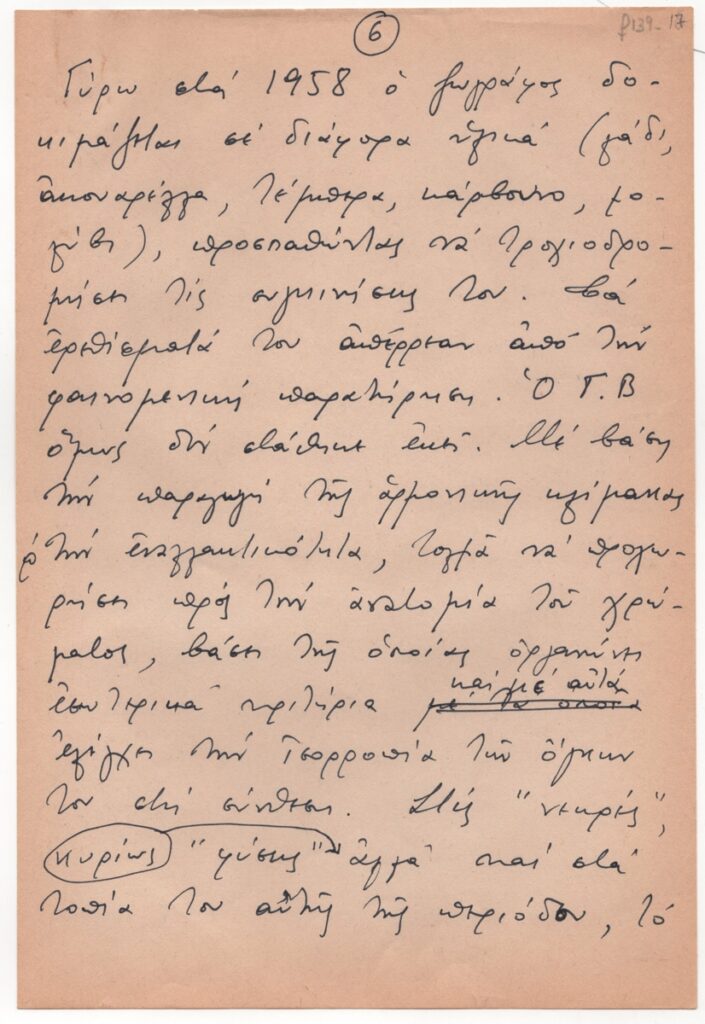 6
β139-17
Γύρω στά 1958 ὁ ζωγράφος δο-
κιμάζεται σέ διάφορα ὑλικά (λάδι,
ἀκουαρέλλα, τέμπερα, κάρβουνο, μο-
λύβι), προσπαθώντας νά τροχιοδρο-
μήσει τίς συγκινήσεις του. Τά
ἐρεθίσματά του ἀπέρρεαν ἀπό τήν
φαινομενική παρατήρηση. Ὁ Γ.Β
ὅμως δέν στάθηκε ἐκεῖ. Μέ βάση
τήν παραγωγή τῆς ἁρμονικῆς κλίμακας
τήν ἐναλλακτικότητα, τολμᾶ νά προχω-
ρήσει πρός τήν ἀνατομία τοῦ χρώ-
ματος, βάσει τῆς ὁποίας ὀργανώνει
καί μέ αὐτά
ἐσωτερικά κριτήρια με τα οποια
ἐλέγχει τήν ἰσορροπία τῶν ὄγκων
του στή σύνθεση. Στίς "νεκρές",
κυρίως "φύσεις" ἀλλά καί στά
τοπία του αὐτῆς τῆς περιόδου, τό